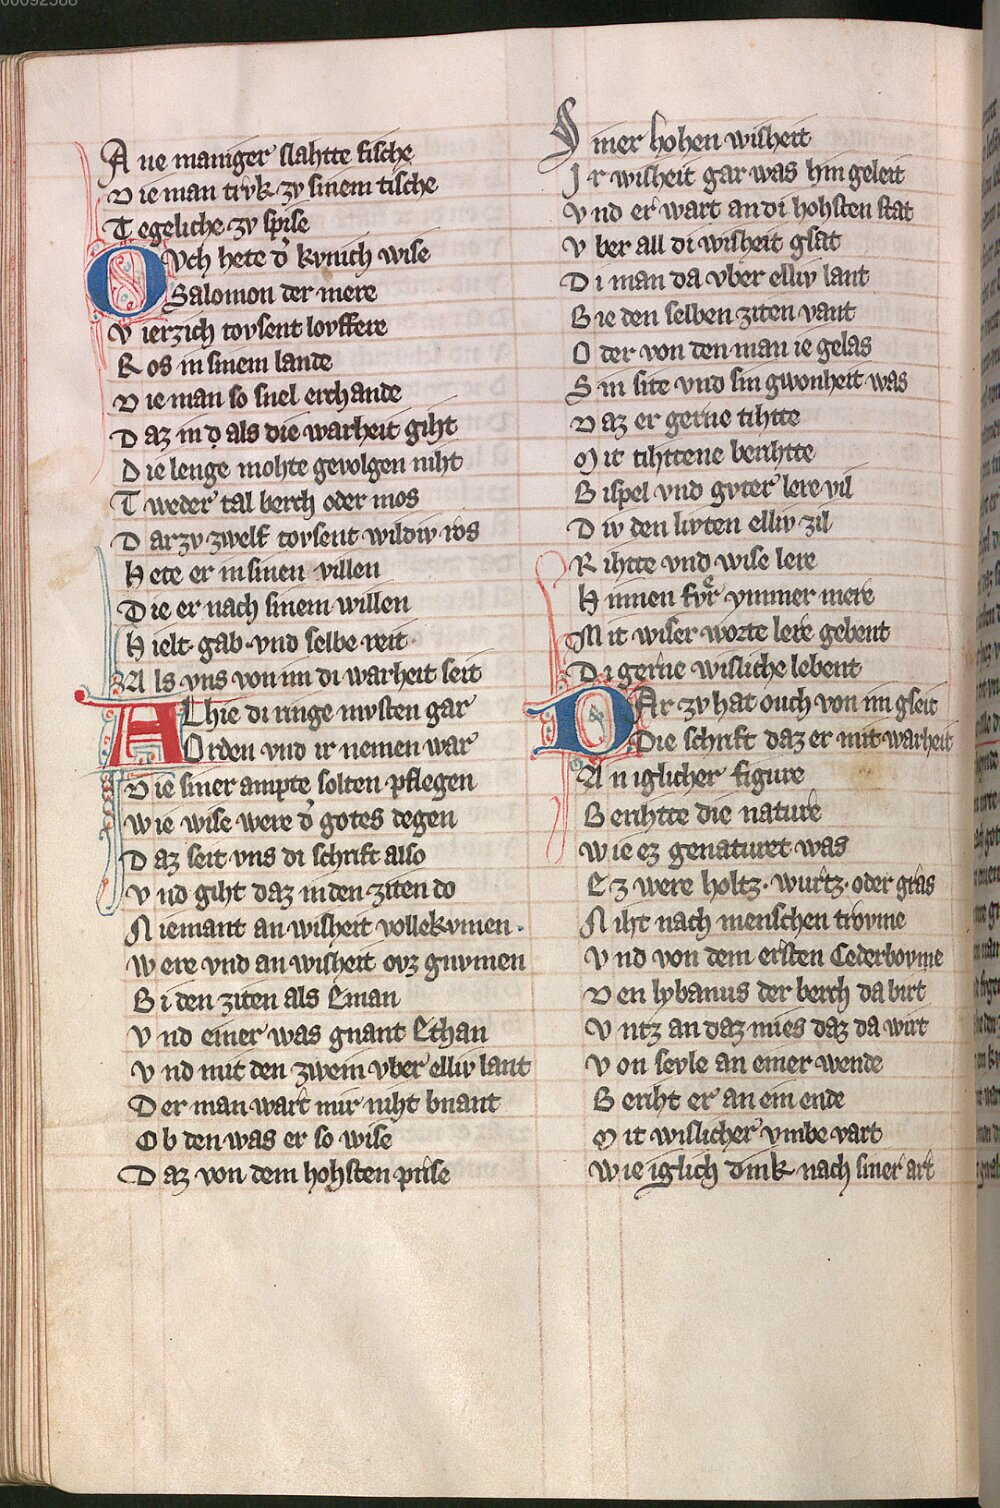 00092588
A ne maniger slahtte fische
D ie man trvk zv sinem tische
T egeliche zv spise
OVch hete d' kvnich wise
Salomon der mere
V ierzich tovsent lovffere
R os in sinem lande
D ie man so snel erchande
D az in d als die warheit giht
D ie lenge mohte gevolgen niht
T weder tal berch oder mos
D arzv zwelf tovsent wildiv ros
H ete er in sinen villen
D ie er nach sinem willen
H ielt· gab· vnd selbe reit·
A ls vns von im di warheit seit
ALhie di iunge mvsten gar
Orden vnd ir nemen war
D ie siner ampte solten pflegen
W ie wise were d' gotes degen
D az seit vns di schrift also
V nd giht daz in den ziten do
N iemant an wisheit vollekvmen·
W ere vnd an wisheit ovz gnvmen
B i den ziten als Eman
V nd einer was gnant Ethan
V nd mit den zwein vber elliv lant
D er man wart mir niht bnant
O b den was er so wise
D az von dem hohsten prise
S iner hohen wisheit
I r wisheit gar was hin geleit
V nd er wart an di hohsten stat
V ber all di wisheit gsat
D i man da vber elliv lant
B ie den selben ziten vant
O der von den man ie gelas
S in site vnd sin gwonheit was
D az er gerne tihtte
M it tihttene berihtte
B ispel vnd gvter lere vil
D iv den livten elliv zil
R ihtte vnd wise lere
H innen fvr ymmer mere
M it wiser worte lere gebent
D i gerne wisliche lebent
DAr zv hat ouch von im gseit
Die schrift daz er mit warheit
A n iglicher figure
B erihtte die nature
W ie ez genaturet was
E z were holtz· wurtz· oder gras
N iht nach menschen trovme
V nd von dem ersten Cederbovme
D en lybanus der berch da birt
V ntz an daz mies daz da wirt
V on fevle an einer wende
B eriht er an ein ende
M it wislicher vmbe vart
W ie iglich dink nach siner art